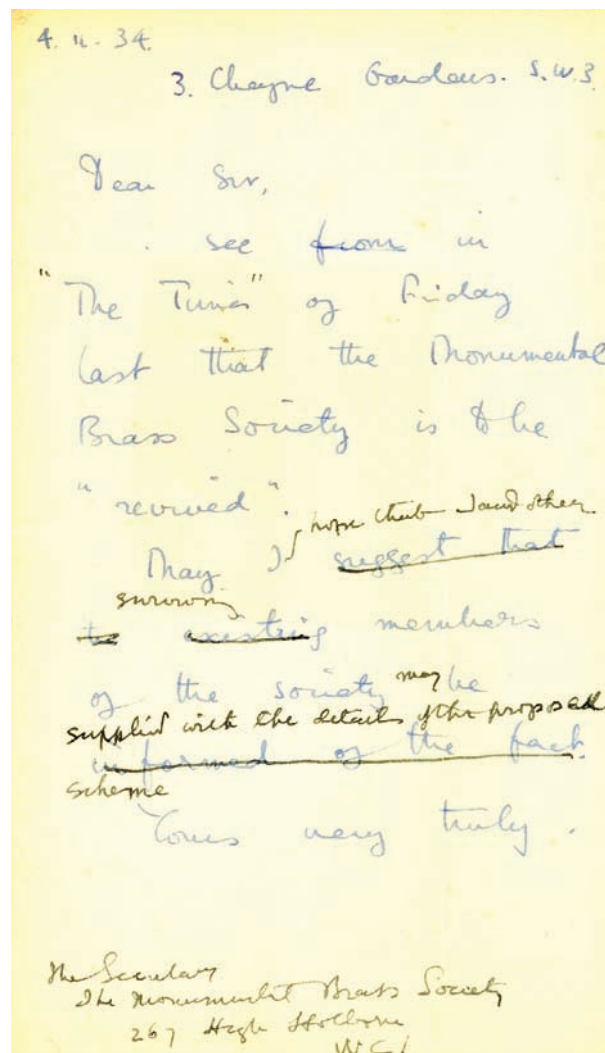 4. 11. 34.
3. Cheyne Gardens. S.W.3.
Dear Sir,
. see from in
"The Times" of Friday
last that the Monumental
Brass Society is to be
"revived".
hope that I and other
May I suggest that
surviving
to existing members
of the society may be
supplied with the details of the proposed
informed of the fact.
scheme
Yours very truly.
The Secretary
The Monumental Brass Society
267 High Holborn
WC1